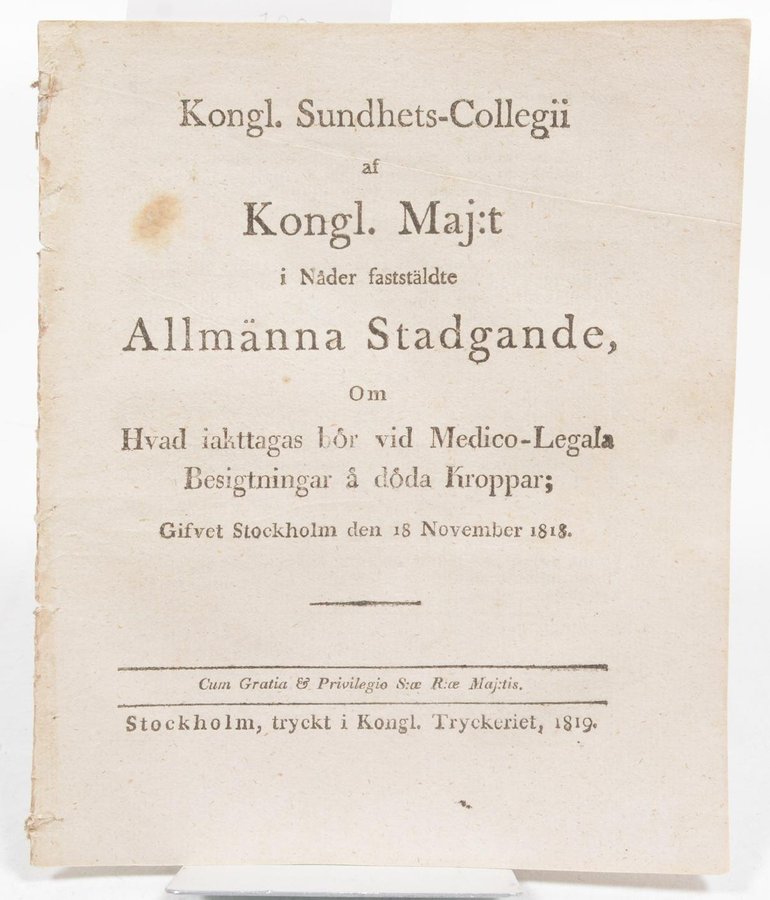 Kongl. Sundhets-Collegii
af
Kongl. Maj:t
i Nåder faststäldte
Allmänna Stadgande,
Om
Hvad iakttagas bör vid Medico-Legala
Besigtningar å döda Kroppar;
Gifvet Stockholm den 18 November 1818.
Cum Gratia & Privilegio S:æ R:æ Maj:tis.
Stockholm, tryckt i Kongl. Tryckeriet, 1819.